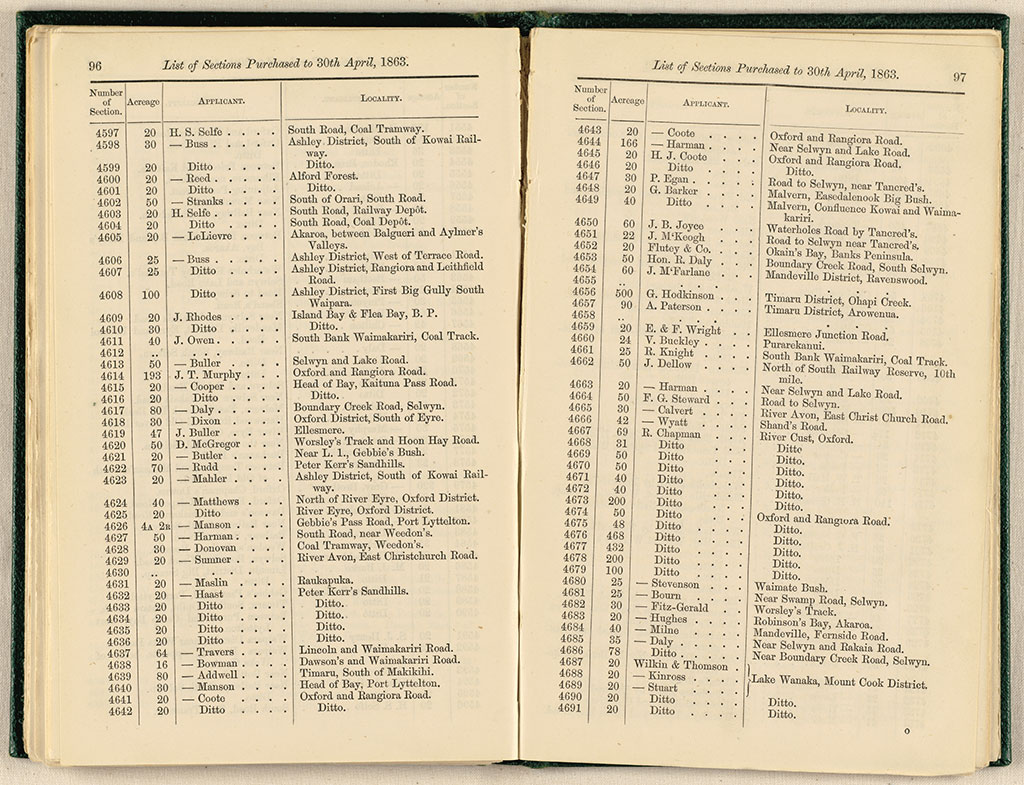 96
List of Sections Purchased to 30th April, 1863.
Number of Section. Acreage Applicant. Locality.
4597 20 H. S. Selfe . . . . South Road, Coal Tramway.
4598 30 — Buss . . . . Ashley District, South of Kowai Rail-
way.
4599 20 Ditto . . . . Ditto.
4600 20 — Reed . . . . Alford Forest.
4601 20 Ditto . . . . Ditto.
4602 50 — Stranks . . . . South of Orari, South Road.
4603 20 H. Selfe . . . . South Road, Railway Depôt.
4604 20 Ditto . . . . South Road, Coal Depôt.
4605 20 — LeLievre . . . . Akaroa, between Balgueri and Aylmer's
Valleys.
4606 25 — Buss . . . . Ashley District, West of Terrace Road.
4607 25 Ditto . . . . Ashley District, Rangiora and Leithfield
Road.
4608 100 Ditto . . . . Ashley District, First Big Gully South
Waipara.
4609 20 J. Rhodes . . . . Island Bay & Flea Bay, B. P.
4610 30 Ditto . . . . Ditto.
4611 40 J. Owen . . . . South Bank Waimakariri, Coal Track.
4612 .. . . .
4613 50 — Buller . . . . Selwyn and Lake Road.
4614 193 J. T. Murphy . . . . Oxford and Rangiora Road.
4615 20 — Cooper . . . . Head of Bay, Kaituna Pass Road.
4616 20 Ditto . . . . Ditto.
4617 80 — Daly . . . . Boundary Creek Road, Selwyn.
4618 30 — Dixon . . . . Oxford District, South of Eyre.
4619 47 J. Buller . . . . Ellesmere.
4620 50 D. McGregor . . . Worsley's Track and Hoon Hay Road.
4621 20 — Butler . . . . Near L. 1., Gebbie's Bush.
4622 70 — Rudd . . . . Peter Kerr's Sandhills.
4623 20 — Mahler . . . . Ashley District, South of Kowai Rail-
way.
4624 40 — Matthews . . . North of River Eyre, Oxford District.
4625 20 Ditto . . . . River Eyre, Oxford District.
4626 4A 2R — Manson . . . . Gebbie's Pass Road, Port Lyttelton.
4627 50 — Harman . . . . South Road, near Weedon's.
4628 30 — Donovan . . . Coal Tramway, Weedon's.
4629 20 — Sumner . . . . River Avon, East Christchurch Road.
4630 .. . . .
4631 20 — Maslin . . . . Raukapuka.
4632 20 — Haast . . . . Peter Kerr's Sandhills.
4633 20 Ditto . . . . Ditto.
4634 20 Ditto . . . . Ditto.
4635 20 Ditto . . . . Ditto.
4636 20 Ditto . . . . Ditto.
4637 64 — Travers . . . . Lincoln and Waimakariri Road.
4638 16 — Bowman . . . . Dawson's and Waimakariri Road.
4639 80 — Addwell . . . . Timaru, South of Makikihi.
4640 30 — Manson . . . . Head of Bay, Port Lyttelton.
4641 20 — Coote . . . . Oxford and Rangiora Road.
4642 20 Ditto . . . . Ditto.
List of Sections Purchased to 30th April, 1863.
97
Number of Section. Acreage Applicant. Locality.
4643 20 — Coote . . . . Oxford and Rangiora Road.
4644 166 — Harman . . . . Near Selwyn and Lake Road.
4645 20 H. J. Coote . . . . Oxford and Rangiora Road.
4646 20 Ditto . . . . Ditto.
4647 30 P. Egan . . . . Road to Selwyn, near Tancred's.
4648 20 G. Barker . . . . Malvern, Easedalenook Big Bush.
4649 40 Ditto . . . . Malvern, Confluence Kowai and Waima-
kariri.
4650 60 J. B. Joyce . . . . Waterholes Road by Tancred's.
4651 22 J. M'Keogh . . . . Road to Selwyn near Tancred's.
4652 20 Flutey & Co. . . . . Okain's Bay, Banks Peninsula.
4653 50 Hon. R. Daly . . . Boundary Creek Road, South Selwyn.
4654 60 J. M'Farlane . . . Mandeville District, Ravenswood.
4655 .. . . . .
4656 500 G. Hodkinson . . . Timaru District, Ohapi Creek.
4657 90 A. Paterson . . . . Timaru District, Arowenua.
4658 .. . . . .
4659 20 E. & F. Wright . . Ellesmere Junction Road.
4660 24 V. Buckley . . . . Purarekanui.
4661 25 R. Knight . . . . South Bank Waimakariri, Coal Track.
4662 50 J. Dellow . . . . North of South Railway Reserve, 10th
mile.
4663 20 — Harman . . . . Near Selwyn and Lake Road.
4664 50 F. G. Steward . . . Road to Selwyn.
4665 30 — Calvert . . . . River Avon, East Christ Church Road.
4666 42 — Wyatt . . . . Shand's Road.
4667 69 R. Chapman . . . . River Cust, Oxford.
4668 31 Ditto . . . . Ditto
4669 50 Ditto . . . . Ditto.
4670 50 Ditto . . . . Ditto.
4671 40 Ditto . . . . Ditto.
4672 40 Ditto . . . . Ditto.
4673 200 Ditto . . . . Ditto.
4674 50 Ditto . . . . Oxford and Rangiora Road.
4675 48 Ditto . . . . Ditto.
4676 468 Ditto . . . . Ditto.
4677 432 Ditto . . . . Ditto.
4678 200 Ditto . . . . Ditto.
4679 100 Ditto . . . . Ditto.
4680 25 — Stevenson . . . Waimate Bush.
4681 25 — Bourn . . . . Near Swamp Road, Selwyn.
4682 30 — Fitz-Gerald . . . Worsley's Track.
4683 20 — Hughes . . . . Robinson's Bay, Akaroa.
4684 40 — Milne . . . . Mandeville, Fernside Road.
4685 35 — Daly . . . . Near Selwyn and Rakaia Road.
4686 78 Ditto . . . . Near Boundary Creek Road, Selwyn.
4687 20 Wilkin & Thomson .
4688 20 — Kinross . . . . Lake Wanaka, Mount Cook District.
4689 20 — Stuart . . . .
4690 20 Ditto . . . . Ditto.
4691 20 Ditto . . . . Ditto.
O